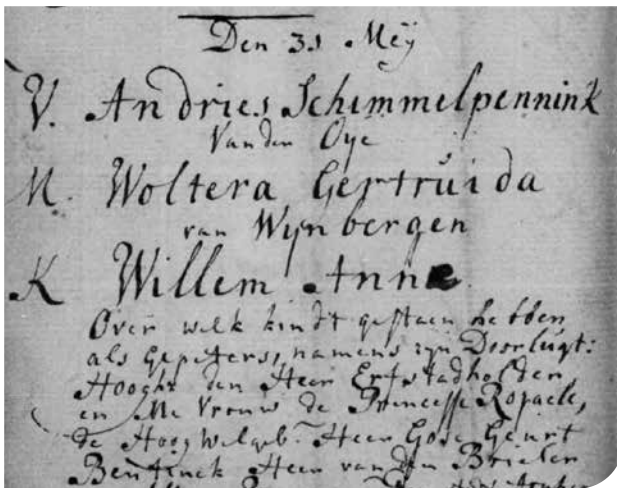 Den 31 Meÿ
V. Andries Schimmelpennink
Van den Oye
M. Woltera Gertruida
van Wynbergen
K Willem Anne
Over welk kindt gestaen hebben
als Gepeters, namens zyn Doorlugt:
Hooght den Heer Erfstadholder,
en Me Vrouw de Princesse Royaele,
de Hoog Welgeb. Heer Gose Geurt
Bentinck Heer van den Brieler